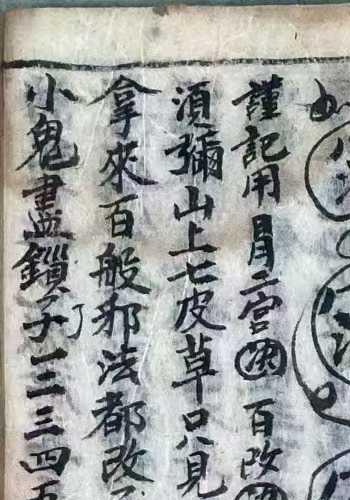 謹記用二宮百改
須彌山上七皮草只見
拿來百般邪法都改
小鬼盡鎖子一二三四五